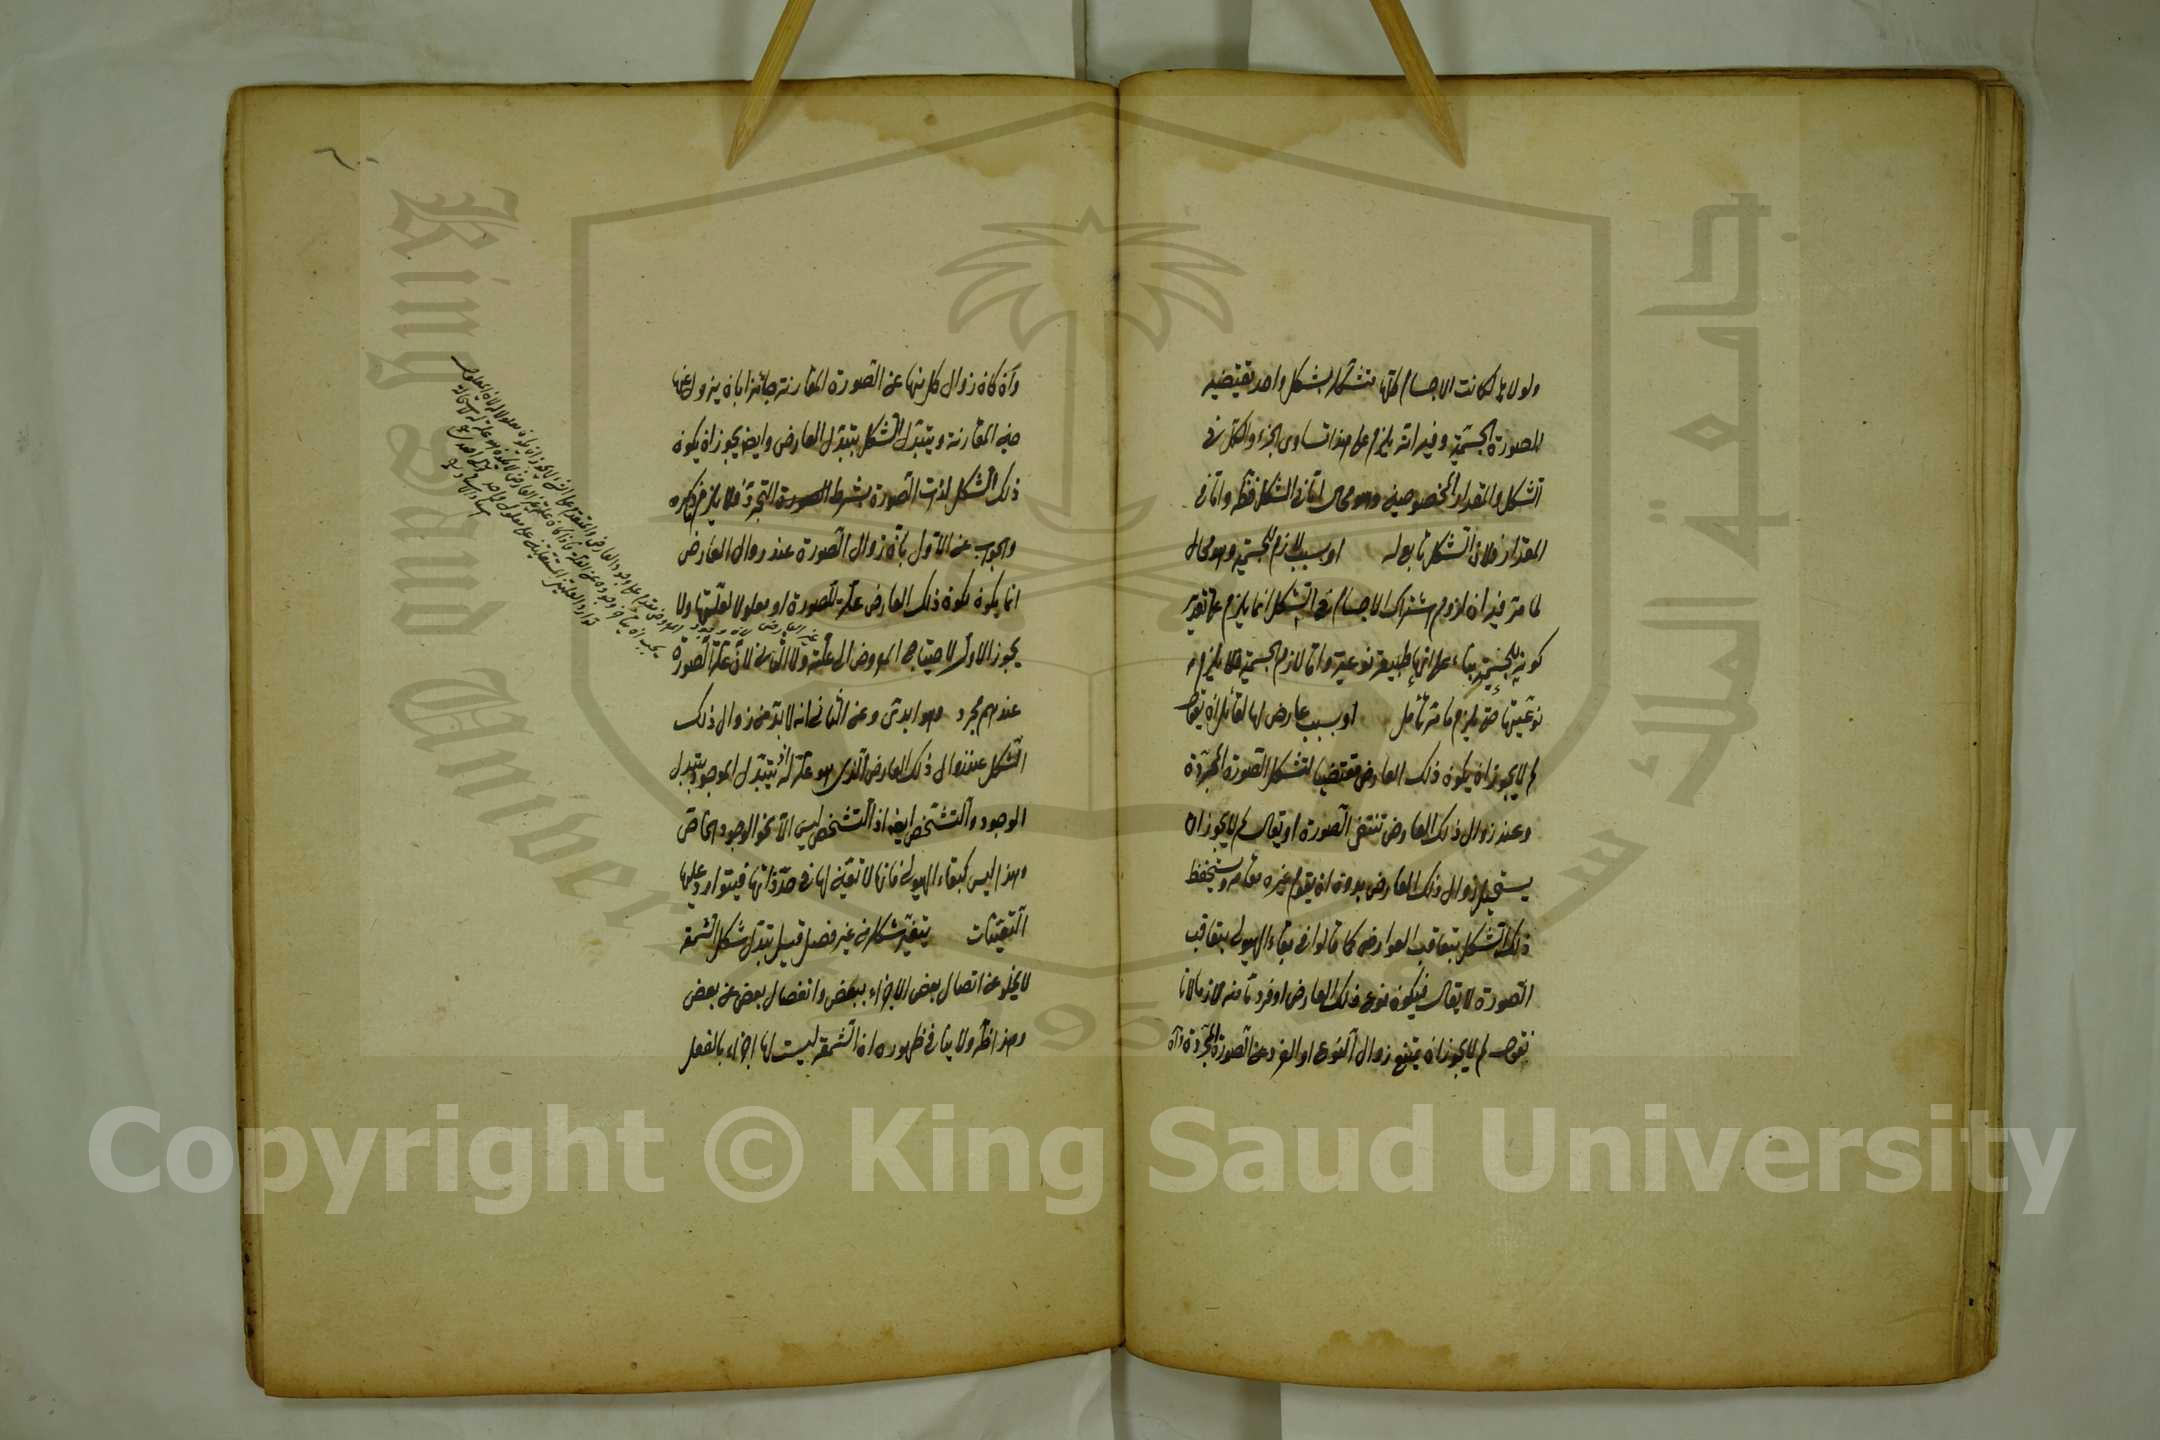 ولولاها لكانت الاجسام كلها متشكلة بشكل واحد يقتضيه
للصورة الجسمية وفيه انه يلزم على هذا تساوى الجزء والكل فى
الشكل والمقدار المخصوصين وهو محال اما فى الشكل فظ واما فى
المقدار فلان الشكل تابع له او بسبب لازم للجسمية وهو محال
لما مر فيه ان لزوم اشتراك الاجسام فى الشكل انما يلزم على تقدير
كونه للجسمية بناء على انها طبيعة نوعية واما لازم الجسمية فلا يلزم
نوعيتها حتى يلزم ما مر تأمل او بسبب عارض لها لقائل ان يقول
لم لا يجوز ان يكون ذلك العارض مقتضيا لتشكل الصورة المجردة
وعند زوال ذلك العارض تنتفى الصورة او يقال لم لا يجوز ان
يستحيل زوال ذلك العارض بدون ان يقوم غيره مقامه ويستحفظ
ذلك الشكل بتعاقب العوارض كما قالوا فى بقاء الهيولى بتعاقب
الصورة لا يقال فيكون نوع ذلك العارض او فرد ما منه لازما لانا
نقول لم لا يجوز ان يمتنع زوال النوع او الفرد عن الصورة المجردة وان
وان كان زوال كل منها عن الصورة المقارنة جائزا بان يزول عنها
حين المقارنة ويتبدل الشكل بتبدل العارض وايضا يجوز ان يكون
ذلك الشكل لذات الصورة بشرط التجرد فلا يلزم ما ذكره
والجواب عن الاول بان زوال الصورة عند زوال العارض
انما يكون بكون ذلك العارض علة للصورة او معلولا لعلتها ولا
يجوز الاول لاحتياج المعروض الى علته ولا الثانى لان علة الصورة
عندهم مجرد وهو ابدى وعن الثانى انه لا بد من زوال ذلك
الشكل عند زوال ذلك العارض الذى هو علة له اذ يتبدل الموجود بتبدل
الوجود والتشخص ايضا اذ التشخص ليس الا نحو الوجود الخاص
وهذا ليس كبقاء الهيولى فانها لا تعين لها فى حد ذاتها فيتوارد عليها
التعينات يتغير شكله من غير فصل قيل تبدل شكل الشمعة
لا يخلو عن اتصال بعض الاجزاء ببعض وانفصال بعض عن بعض
وهذا ظ ولا ينافى ظهوره ان الشمعة ليست لها اجزاء بالفعل
٦٠
King Saud University
جامعة الملك سعود
1957
Copyright © King Saud University